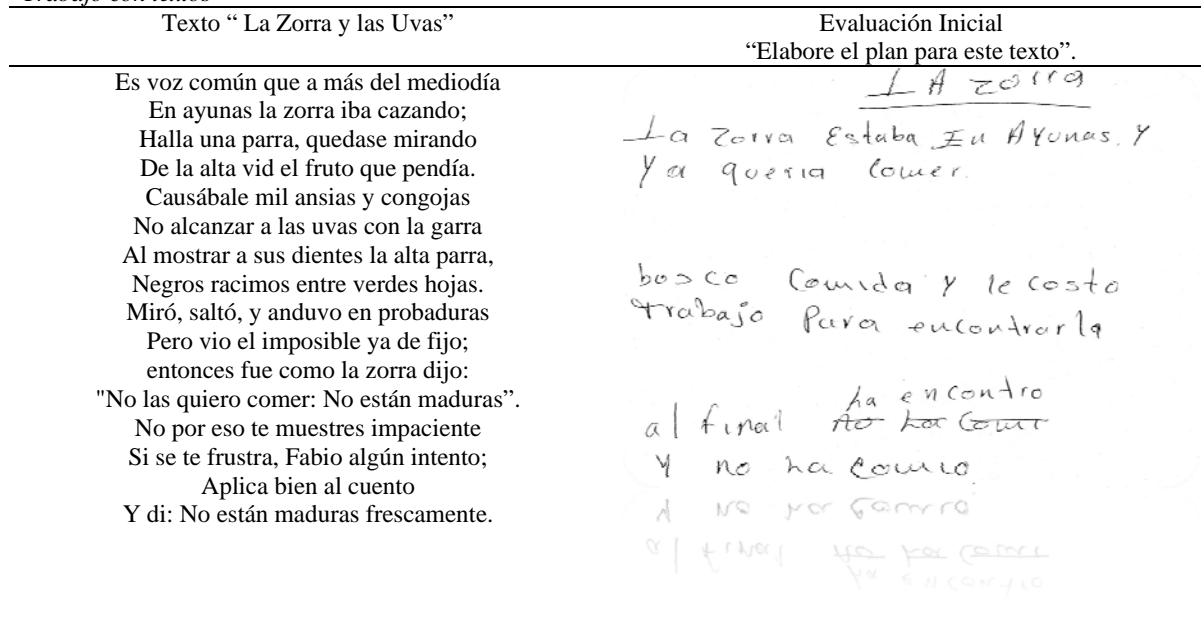 Trabajo con textos
Texto “ La Zorra y las Uvas”
Es voz común que a más del mediodía
En ayunas la zorra iba cazando;
Halla una parra, quedase mirando
De la alta vid el fruto que pendía.
Causábale mil ansias y congojas
No alcanzar a las uvas con la garra
Al mostrar a sus dientes la alta parra,
Negros racimos entre verdes hojas.
Miró, saltó, y anduvo en probaduras
Pero vio el imposible ya de fijo;
entonces fue como la zorra dijo:
"No las quiero comer: No están maduras”.
No por eso te muestres impaciente
Si se te frustra, Fabio algún intento;
Aplica bien al cuento
Y di: No están maduras frescamente.
Evaluación Inicial
“Elabore el plan para este texto”.
LA zorra
La Zorra Estaba En AYunas. Y
Ya queria comer.
bosco Comida y le costo
trabajo Para encontrarla
ha encontro
al final no ha comi
Y no ha comio